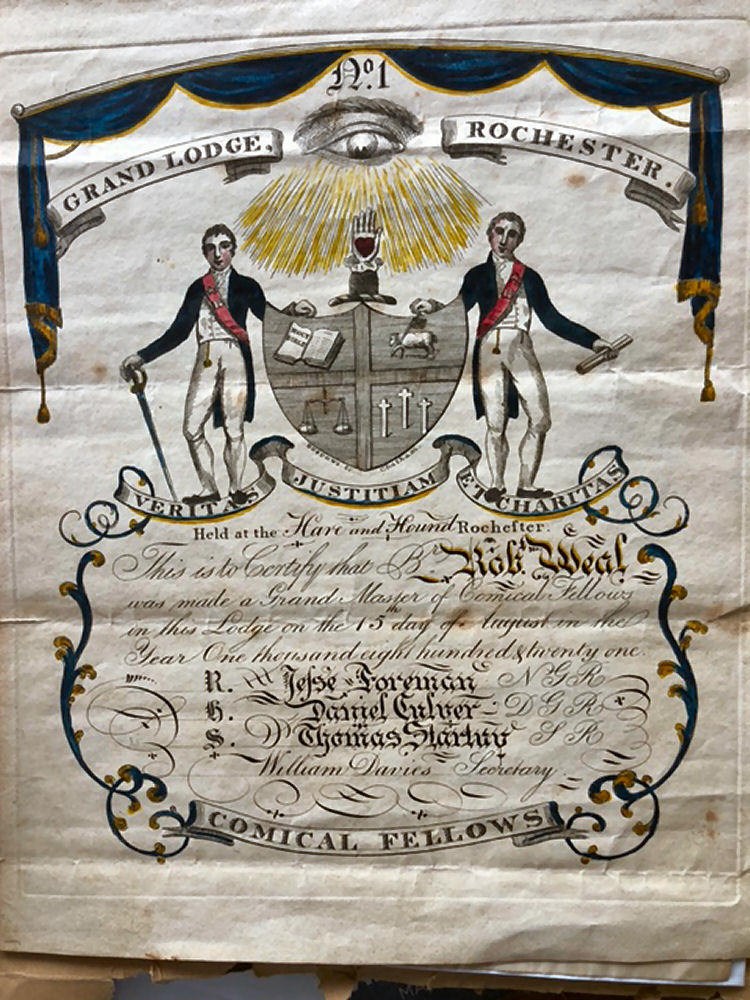 No. 1
GRAND LODGE, ROCHESTER.
HOLY BIBLE
VERITAS JUSTITIAM ET CHARITAS
Held at the Hare and Hound Rochester.
This is to Certify that Br. Robt. Weal
was made a Grand Master of Comical Fellows
in this Lodge on the 15th day of August in the
Year One thousand eight hundred & twenty one.
R. Jesse Foreman N G R
H. Daniel Culver D G R
S. Thomas S R
William Davies Secretary
COMICAL FELLOWS